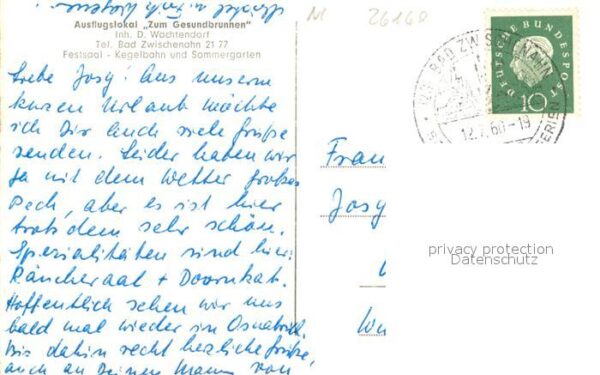 Ausflugslokal „Zum Gesundbrunnen"
Inh. D. Wachtendorf
Tel. Bad Zwischenahn 21 77
Festsaal - Kegelbahn und Sommergarten
Liebe Josy! Aus unserm
kurzen Urlaub möchte
ich Dir auch viele Grüße
senden. Leider haben wir
ja mit dem Wetter großes
Pech, aber es ist hier
trotzdem sehr schön.
Spezialitäten sind hier:
Räucheraal + Doornkat.
Hoffentlich sehen wir uns
bald mal wieder in Osnabrück.
Bis dahin recht herzliche Grüße,
auch an Deinen Mann von
M 26160
DEUTSCHE BUNDESPOST
10
BAD ZWISCHENAHN
12.7.60-19
Frau
Josy
privacy protection
Datenschutz